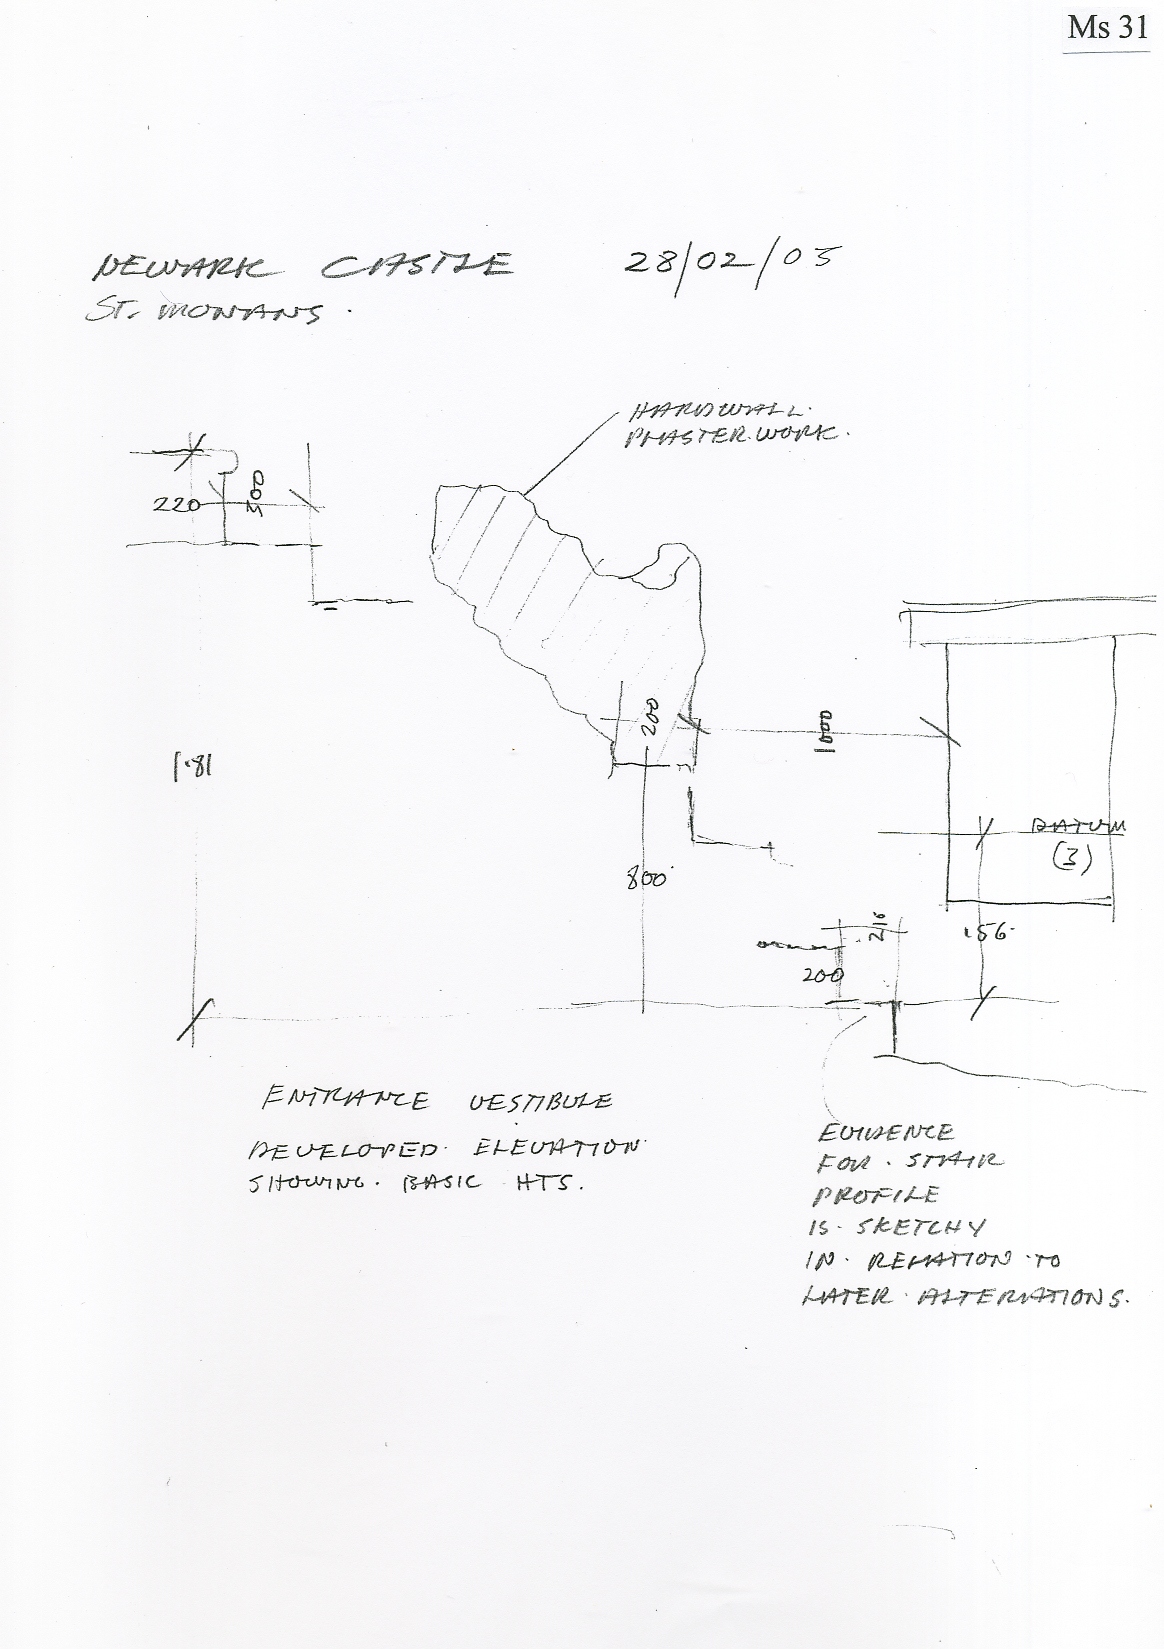 Ms 31
NEWARK CASTLE 28/02/05
ST. MONANS.
HARDWALL.
PLASTER.WORK.
220
300
200
1600
1.81
DATUM
(3)
800
.216
.56.
200
ENTRANCE VESTIBULE
DEVELOPED. ELEVATION
SHOWING. BASIC HTS.
EVIDENCE
FOR. STAIR
PROFILE
IS. SKETCHY
IN. RELATION. TO
LATER. ALTERATIONS.